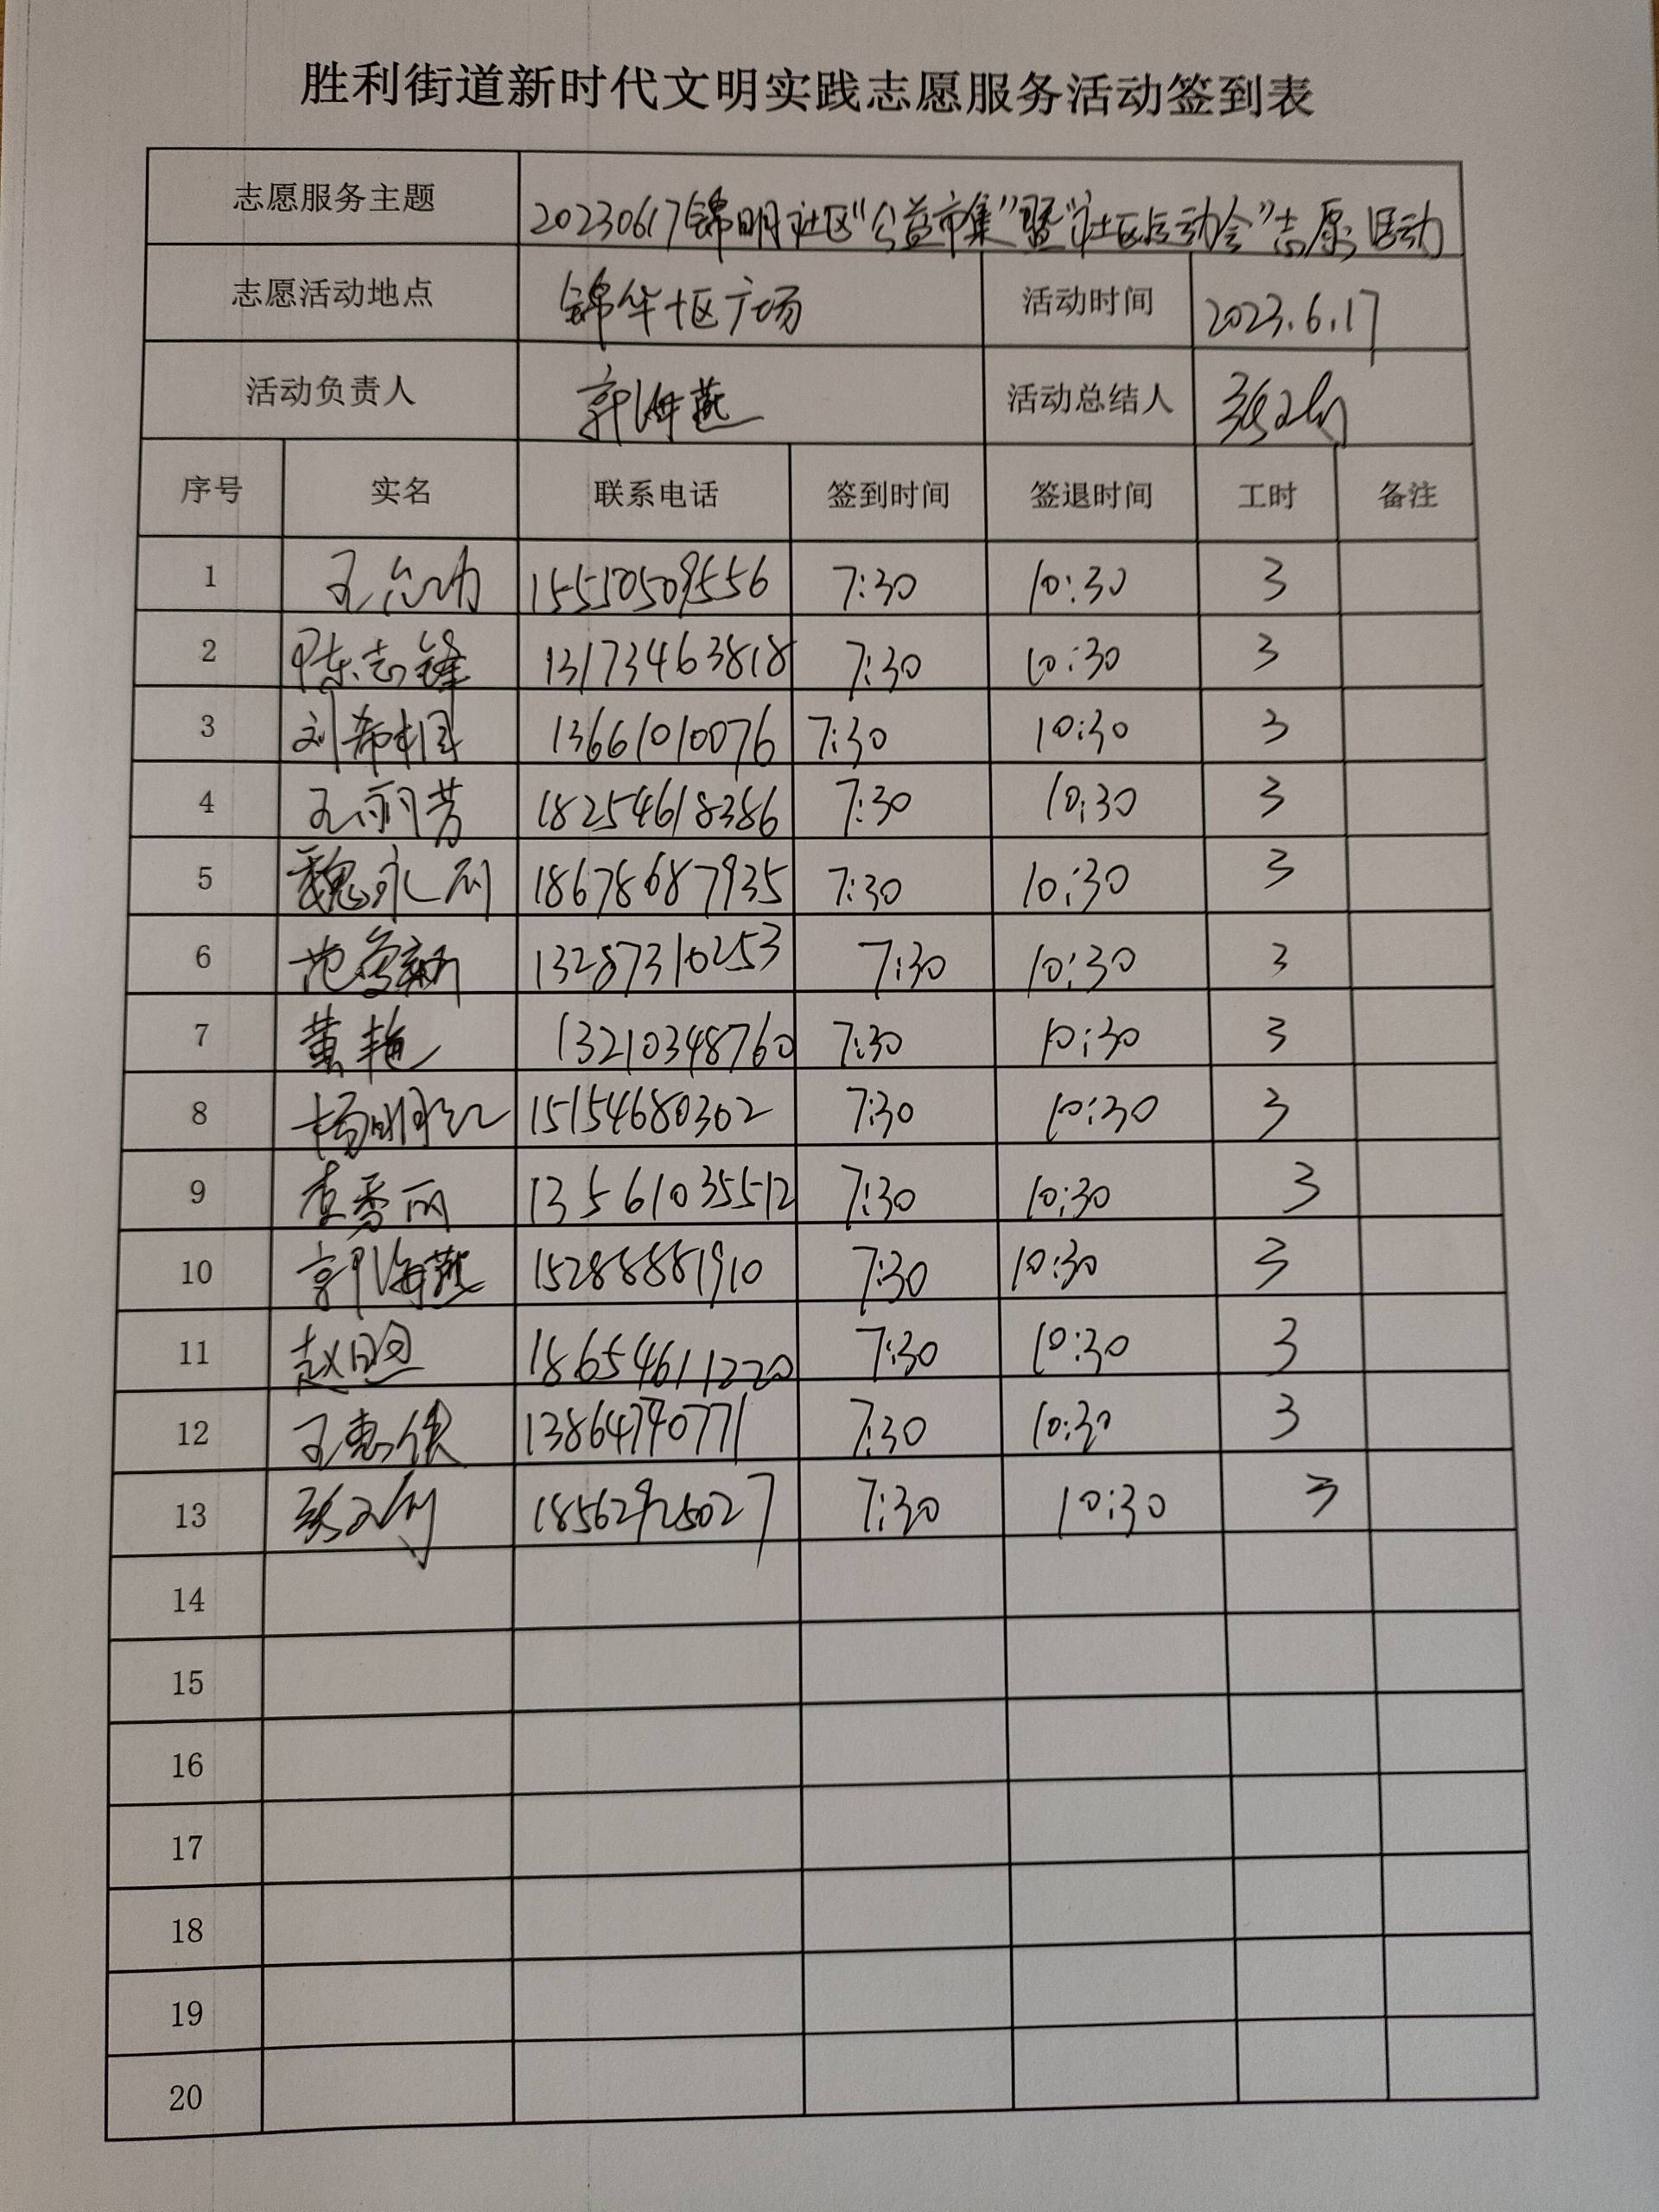 胜利街道新时代文明实践志愿服务活动签到表
志愿服务主题 20230617锦明社区“公益市集”暨“社区运动会”志愿活动
志愿活动地点 锦华十区广场 活动时间 2023.6.17
活动负责人 郭海燕 活动总结人
序号 实名 联系电话 签到时间 签退时间 工时 备注
1 15550509556 7:30 10:30 3
2 陈志锋 13173463818 7:30 10:30 3
3 刘希相 13661010076 7:30 10:30 3
4 王丽芳 18254618386 7:30 10:30 3
5 魏永刚 18678687935 7:30 10:30 3
6 13287310253 7:30 10:30 3
7 黄艳 13210348760 7:30 10:30 3
8 杨明红 15154680302 7:30 10:30 3
9 查雪丽 13561035512 7:30 10:30 3
10 郭海燕 15288881910 7:30 10:30 3
11 18654611220 7:30 10:30 3
12 王惠俊 7:30 10:30 3
13 18562925027 7:30 10:30 3
14
15
16
17
18
19
20